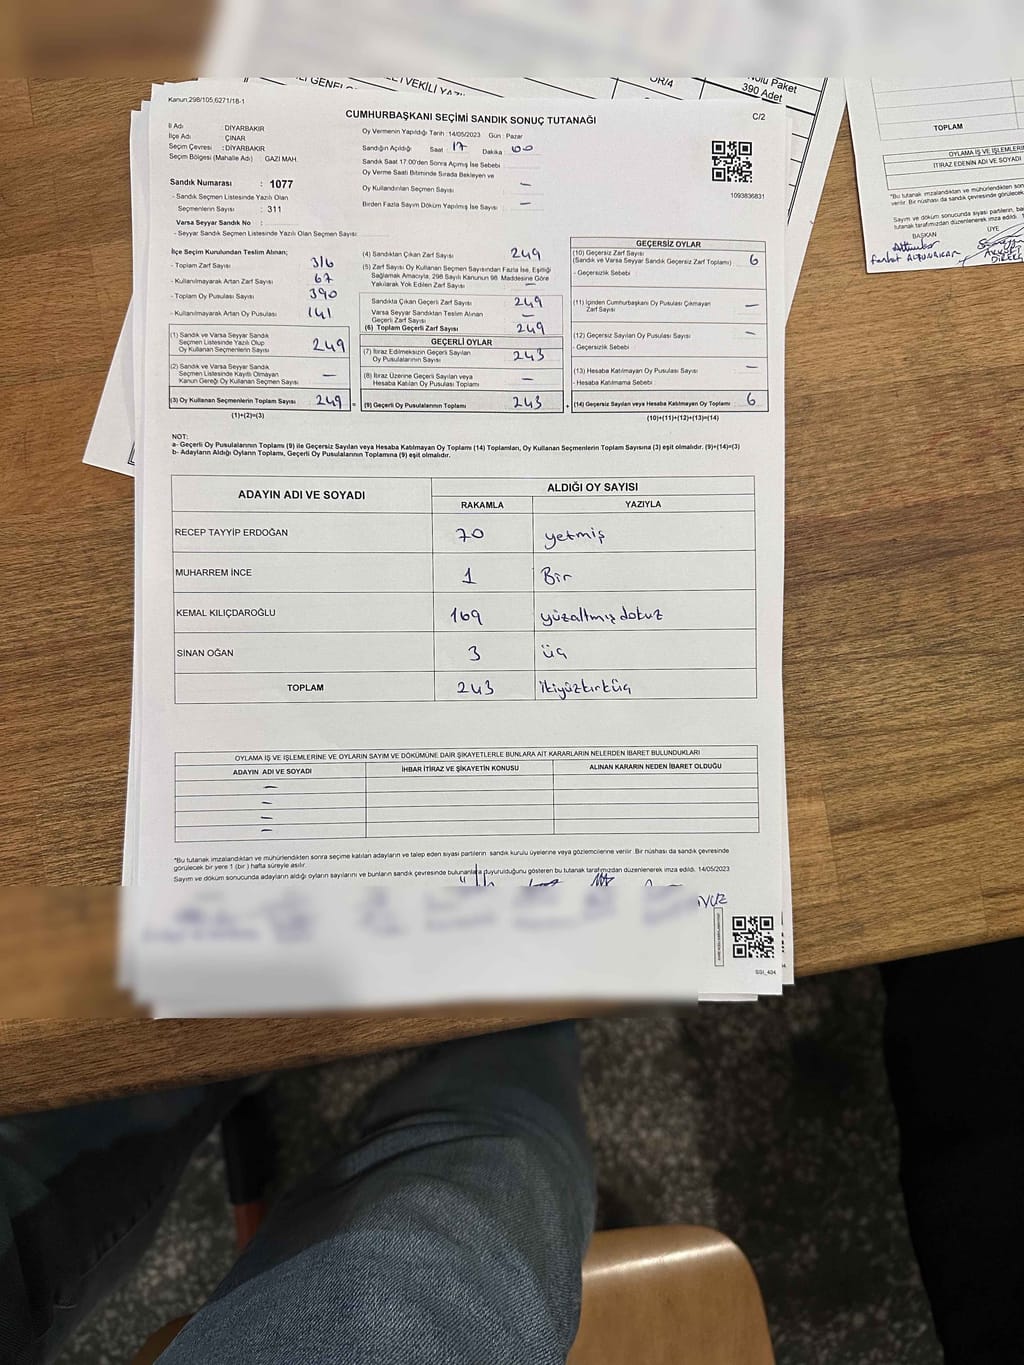 Kanun:298/105,6271/18-1
CUMHURBAŞKANI SEÇİMİ SANDIK SONUÇ TUTANAĞI
C/2
İl Adı DİYARBAKIR
İlçe Adı ÇINAR
Seçim Çevresi : DİYARBAKIR
Seçim Bölgesi (Mahalle Adı) : GAZİ MAH.
Sandık Numarası : 1077
- Sandık Seçmen Listesinde Yazılı Olan
Seçmenlerin Sayısı : 311
Varsa Seyyar Sandık No :
- Seyyar Sandık Seçmen Listesinde Yazılı Olan Seçmen Sayısı
Oy Vermenin Yapıldığı Tarih : 14/05/2023 Gün : Pazar
Sandığın Açıldığı Saat : 17 Dakika : 00
Sandık Saat 17.00'den Sonra Açılmış İse Sebebi
Oy Verme Saati Bitiminde Sırada Bekleyen ve
Oy Kullandırılan Seçmen Sayısı —
Birden Fazla Sayım Döküm Yapılmış İse Sayısı —
1093836831
İlçe Seçim Kurulundan Teslim Alınan;
- Toplam Zarf Sayısı 316
- Kullanılmayarak Artan Zarf Sayısı 67
- Toplam Oy Pusulası Sayısı 390
- Kullanılmayarak Artan Oy Pusulası 141
(1) Sandık ve Varsa Seyyar Sandık
Seçmen Listesinde Yazılı Olup
Oy Kullanan Seçmenlerin Sayısı 249
(2) Sandık ve Varsa Seyyar Sandık
Seçmen Listesinde Kayıtlı Olmayan
Kanun Gereği Oy Kullanan Seçmen Sayısı —
(3) Oy Kullanan Seçmenlerin Toplam Sayısı 249
(1)+(2)=(3)
(4) Sandıktan Çıkan Zarf Sayısı 249
(5) Zarf Sayısı Oy Kullanan Seçmen Sayısından Fazla İse, Eşitliği
Sağlamak Amacıyla, 298 Sayılı Kanunun 98. Maddesine Göre
Yakılarak Yok Edilen Zarf Sayısı —
Sandıkta Çıkan Geçerli Zarf Sayısı 249
Varsa Seyyar Sandıktan Teslim Alınan
Geçerli Zarf Sayısı —
(6) Toplam Geçerli Zarf Sayısı 249
GEÇERLİ OYLAR
(7) İtiraz Edilmeksizin Geçerli Sayılan
Oy Pusulalarının Sayısı 243
(8) İtiraz Üzerine Geçerli Sayılan veya
Hesaba Katılan Oy Pusulası Toplamı —
(9) Geçerli Oy Pusulalarının Toplamı 243
GEÇERSİZ OYLAR
(10) Geçersiz Zarf Sayısı
(Sandık ve Varsa Seyyar Sandık Geçersiz Zarf Toplamı) 6
- Geçersizlik Sebebi
(11) İçinden Cumhurbaşkanı Oy Pusulası Çıkmayan
Zarf Sayısı —
(12) Geçersiz Sayılan Oy Pusulası Sayısı —
- Geçersizlik Sebebi
(13) Hesaba Katılmayan Oy Pusulası Sayısı —
- Hesaba Katılmama Sebebi
(14) Geçersiz Sayılan veya Hesaba Katılmayan Oy Toplamı 6
(10)+(11)+(12)+(13)=(14)
NOT:
a- Geçerli Oy Pusulalarının Toplamı (9) ile Geçersiz Sayılan veya Hesaba Katılmayan Oy Toplamı (14) Toplamları, Oy Kullanan Seçmenlerin Toplam Sayısına (3) eşit olmalıdır. (9)+(14)=(3)
b- Adayların Aldığı Oyların Toplamı, Geçerli Oy Pusulalarının Toplamına (9) eşit olmalıdır.
ADAYIN ADI VE SOYADI
ALDIĞI OY SAYISI
RAKAMLA YAZIYLA
RECEP TAYYİP ERDOĞAN 70 yetmiş
MUHARREM İNCE 1 Bir
KEMAL KILIÇDAROĞLU 169 yüzaltmışdokuz
SİNAN OĞAN 3 üç
TOPLAM 243 ikiyüzkırküç
OYLAMA İŞ VE İŞLEMLERİNE VE OYLARIN SAYIM VE DÖKÜMÜNE DAİR ŞİKAYETLERLE BUNLARA AİT KARARLARIN NELERDEN İBARET BULUNDUKLARI
ADAYIN ADI VE SOYADI İHBAR İTİRAZ VE ŞİKAYETİN KONUSU ALINAN KARARIN NEDEN İBARET OLDUĞU
—
—
—
—
*Bu tutanak imzalandıktan ve mühürlendikten sonra seçime katılan adayların ve talep eden siyasi partilerin sandık kurulu üyelerine veya gözlemcilerine verilir. Bir nüshası da sandık çevresinde
görülecek bir yere 1 (bir) hafta süreyle asılır.
Sayım ve döküm sonucunda adayların aldığı oyların sayılarını ve bunların sandık çevresinde bulunanlara duyurulduğunu gösteren bu tutanak tarafımızdan düzenlenerek imza edildi. 14/05/2023
SGI_404
Nolu Paket
390 Adet
TOPLAM
İTİRAZ EDENİN ADI VE SOYADI
BAŞKAN
ÜYE